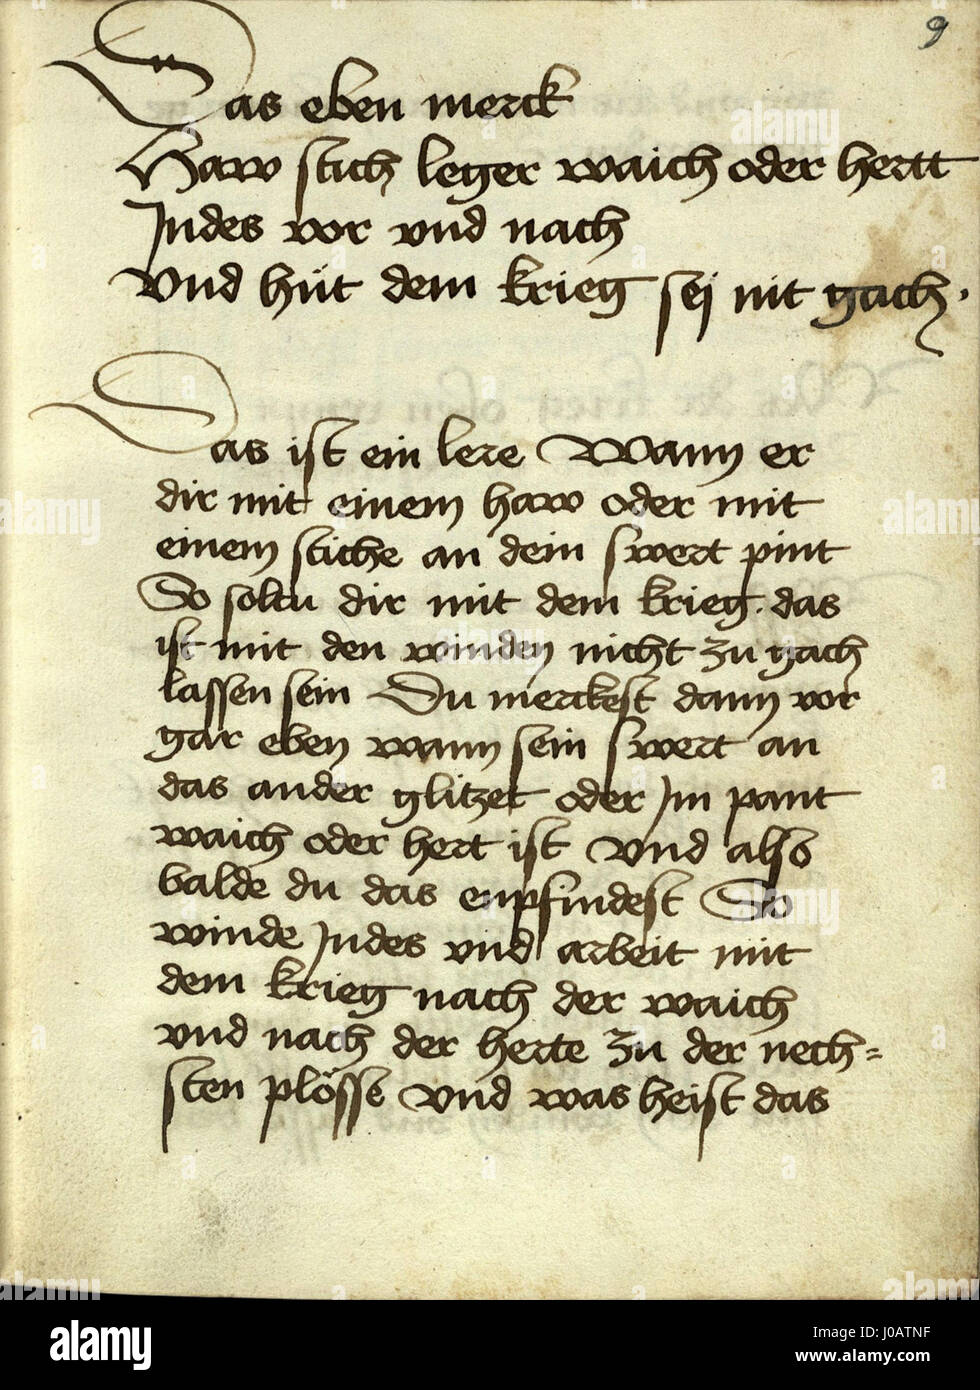 9
Das eben merck
Haw stich leger waich oder hertt
Jndes vor vnd nach
vnd hüt dem krieg sej nit gach.
Das ist ein lere Wann er
dir mit einem haw oder mit
einem stiche an dein swert pint
So soltu dir mit dem krieg. das
ist mit den winden nicht zu gach
lassen sein Du merckest dann vor
gar eben wann sein swert an
das ander glitzet oder Jm pant
waich oder hert ist vnd also
balde du das enpfindest So
winde Jndes vnd arbeit mit
dem krieg nach der waich
vnd nach der herte zu der nech=
sten plösse vnd was heist das
alamy
Image ID: J0ATNF
www.alamy.com